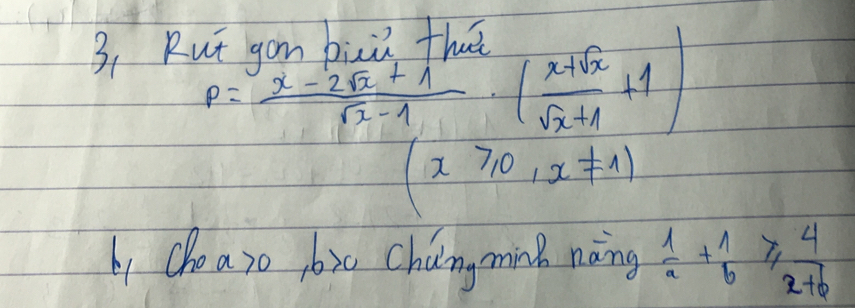 3, Rút gọn biểu thức
P = (x - 2√x + 1)/(√x - 1) . ((x+√x)/(√x+1) + 1)
(x ≥ 0, x ≠ 1)
b, Cho a>0, b>0 Chứng minh rằng 1/a + 1/b ≥ 4/(a+b)